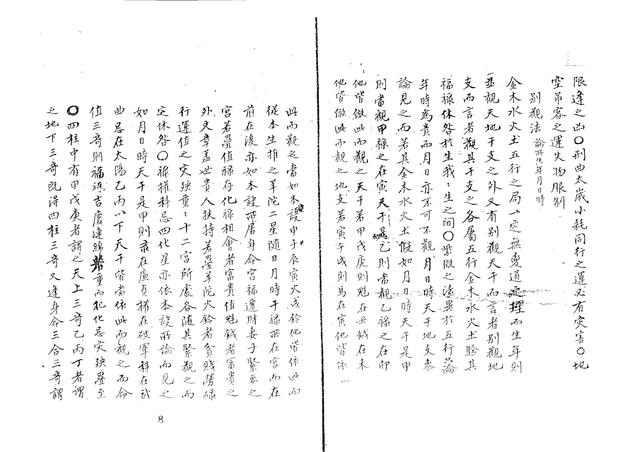 限逢之凶〇刑曲太歲小耗同行之運必有灾害〇地
空吊客之運失物服制
別觀法 論所𠯁年月日時
金木水火土五行之局一定無変道理而生年則
並觀天地干支之外又有別觀天干而言者別觀地
支而言者觀其干支之各屬五行金木水火土驗其
福祿休咎於生我我生之間〇紫微之法異於五行論
年時爲貴而月日亦不可不觀月日時天干地支叅
論見之而若其金木水火土假如月日時天干是甲
則當觀甲祿之在寅天干是乙則當觀乙祿之在卯
他皆倣此而觀之天干甲戊庚則魁在丑鉞在未
他皆倣此而觀之地支若寅午戌則馬在寅他皆依
此而觀之當如本設申子辰寅火戌鈴他皆依此而
從本生推之羊陀二星隨日月時干祿所在宮而在
前在後亦如本設所居身命宮福運財妻子緊要之
宮若疊值祿存化祿相會者富貴值魁鉞者富貴之
外文章蓋世貴人扶持若疊羊陀火鈴者貧賤勞碌
行運值之灾殃重重十二宮所處各隨其吉凶而見
定休咎〇祿權科忌四化星亦依本設所論而見之
如月日時天干是甲則祿在廉貞權在破軍科在武
曲忌在太陽乙丙以下天干皆當依此而觀之而命
值三奇則福添吉慶連綿叢重而犯化忌灾殃疊至
〇四柱中有甲戊庚者謂之天上三奇乙丙丁者謂
之地下三奇既得四柱三奇又逢身命三合三奇謂
8